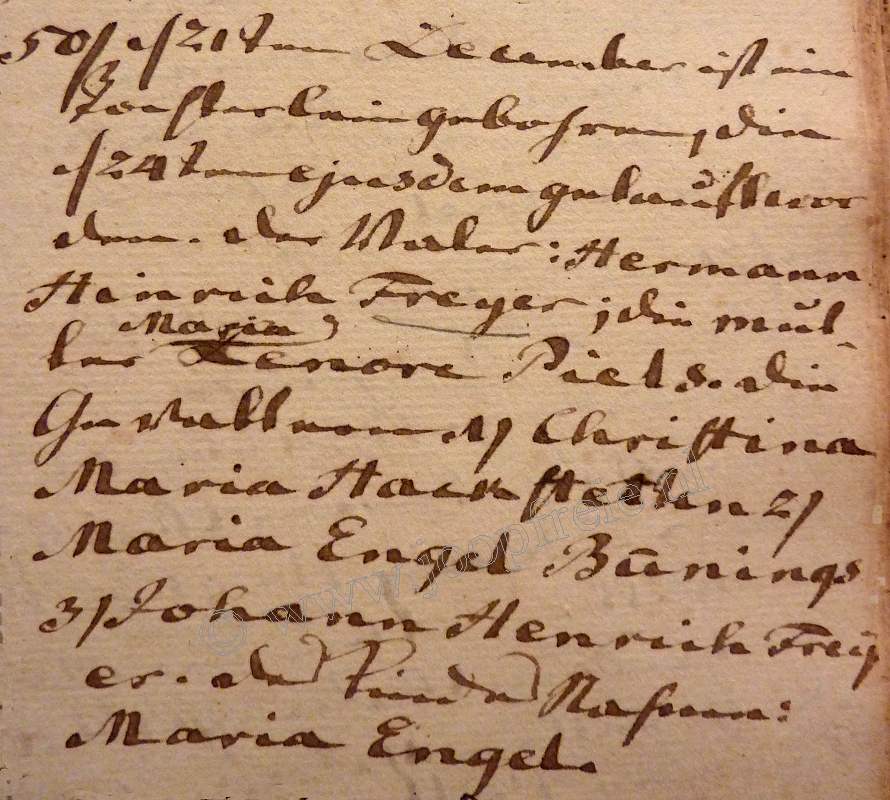 50/ d/ 21ten December ist ein
Töchterlein gebohren, die
d/ 24ten ejusdem getauft wor
den. der Vater: Hermann
Heinrich Freyer; die Mut
Maria
ter Lenore Piels. die
Gevattern 1/ Christina
Maria Hackstette 2/
Maria Engel Bünings
3/ Johann Henrich Frey
er. des Kindes Nahmen:
Maria Engel.
© www.joopfreie.nl